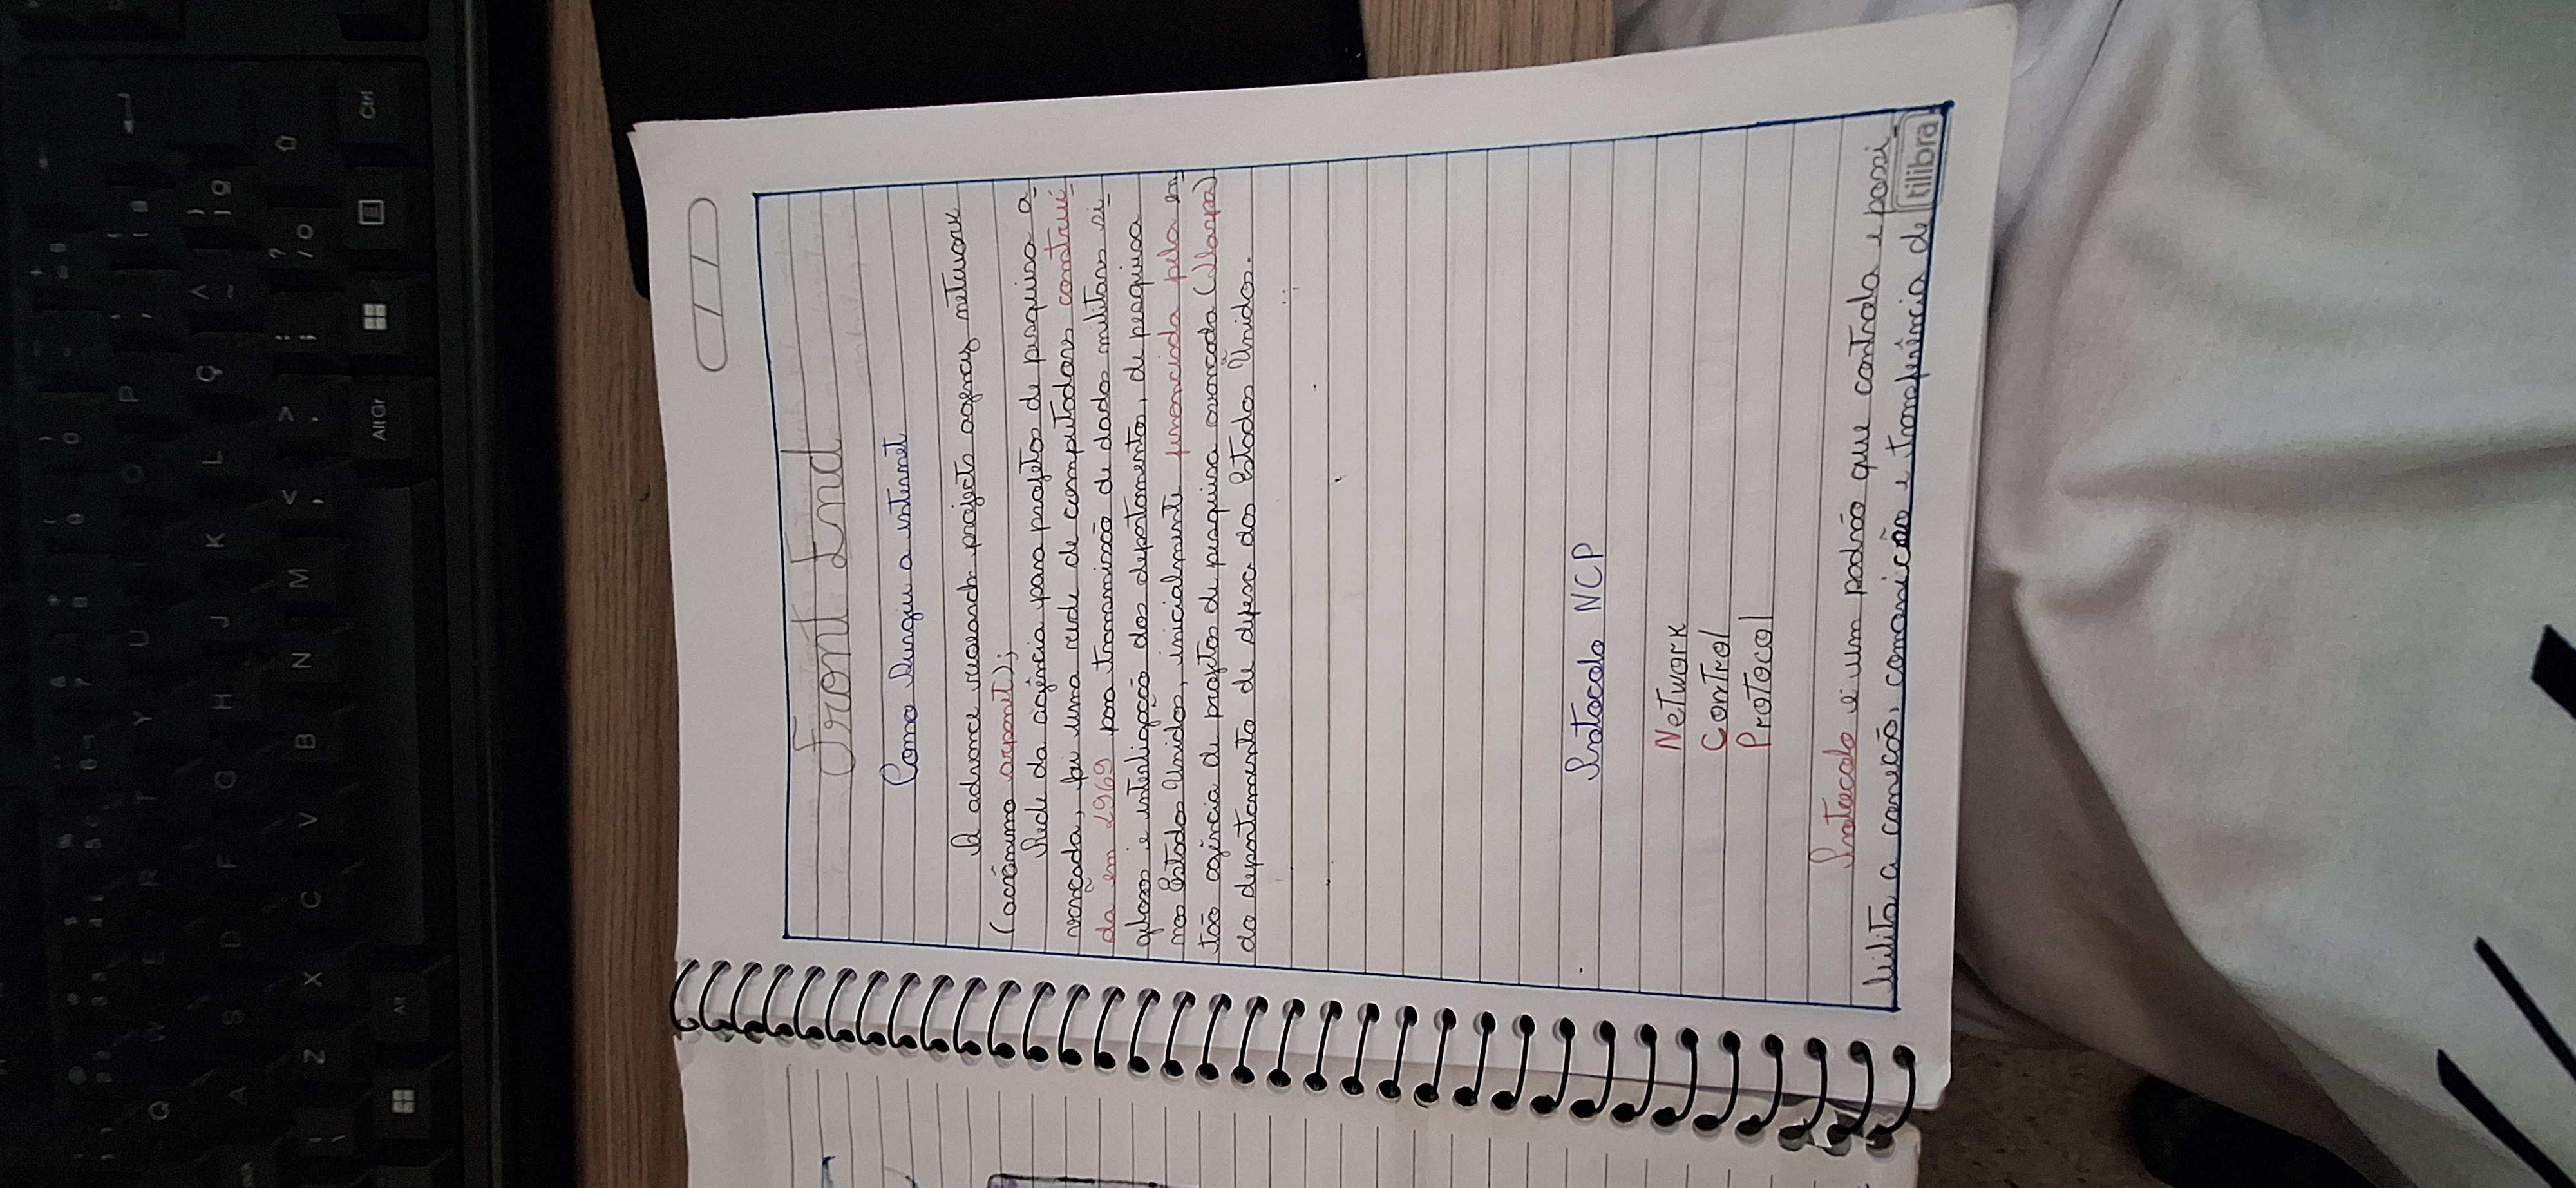 Front End
Como Surgiu a internet
A advance research projects agency network
(acrônimo arpanet);
Rede da agência para projetos de pesquisa a
vançada, foi uma rede de computadores construí
da em 1969 para transmissão de dados militares si
gilosos e interligação dos departamentos, de pesquisa
nos Estados Unidos, inicialmente financiada pela en
tão agência de projetos de pesquisa avançada (Darpa)
do departamento de defesa dos Estados Unidos.
Protocolo NCP
Network
Control
Protocol
Protocolo é um padrão que controla e possi_
bilita a conecão, comonicão e transferência de
tilibra
Q W E R T Y U I O P
A S D F G H J K L Ç
Z X C V B N M < , > . : ; ? /
Alt Alt Gr Ctrl